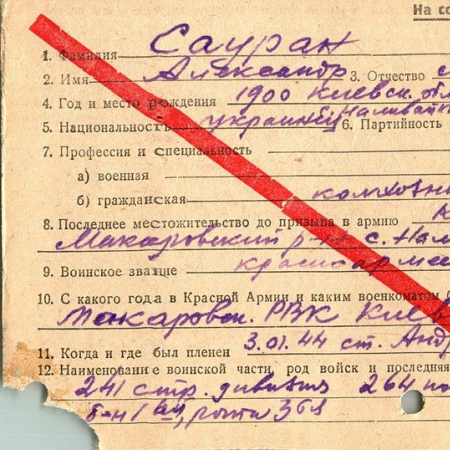 На со
1. Фамилия Сауран
2. Имя Александр 3. Отчество
4. Год и место рождения 1900 Киевск. обл
5. Национальность украинец 6. Партийность
7. Профессия и специальность
а) военная
б) гражданская колхозни
8. Последнее местожительство до призыва в армию
Макаровский р-н с. Нал
9. Воинское звание красноармее
10. С какого года в Красной Армии и каким военкоматом
Макаровск. РВК Киев
11. Когда и где был пленен 3.01.44 ст. Анд
12. Наименование воинской части, род войск и последняя
241 стр. дивизия 264 по
б-н 1 рота 3